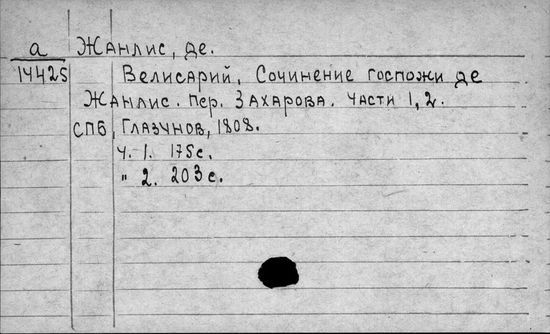 а Жанлис, де.
14425 Велисарий, Сочинение госпожи де
Жанлис. Пер. Захарова. Части 1, 2.
СПБ, Глазунов, 1808.
Ч. 1. 175с.
" 2. 203с.